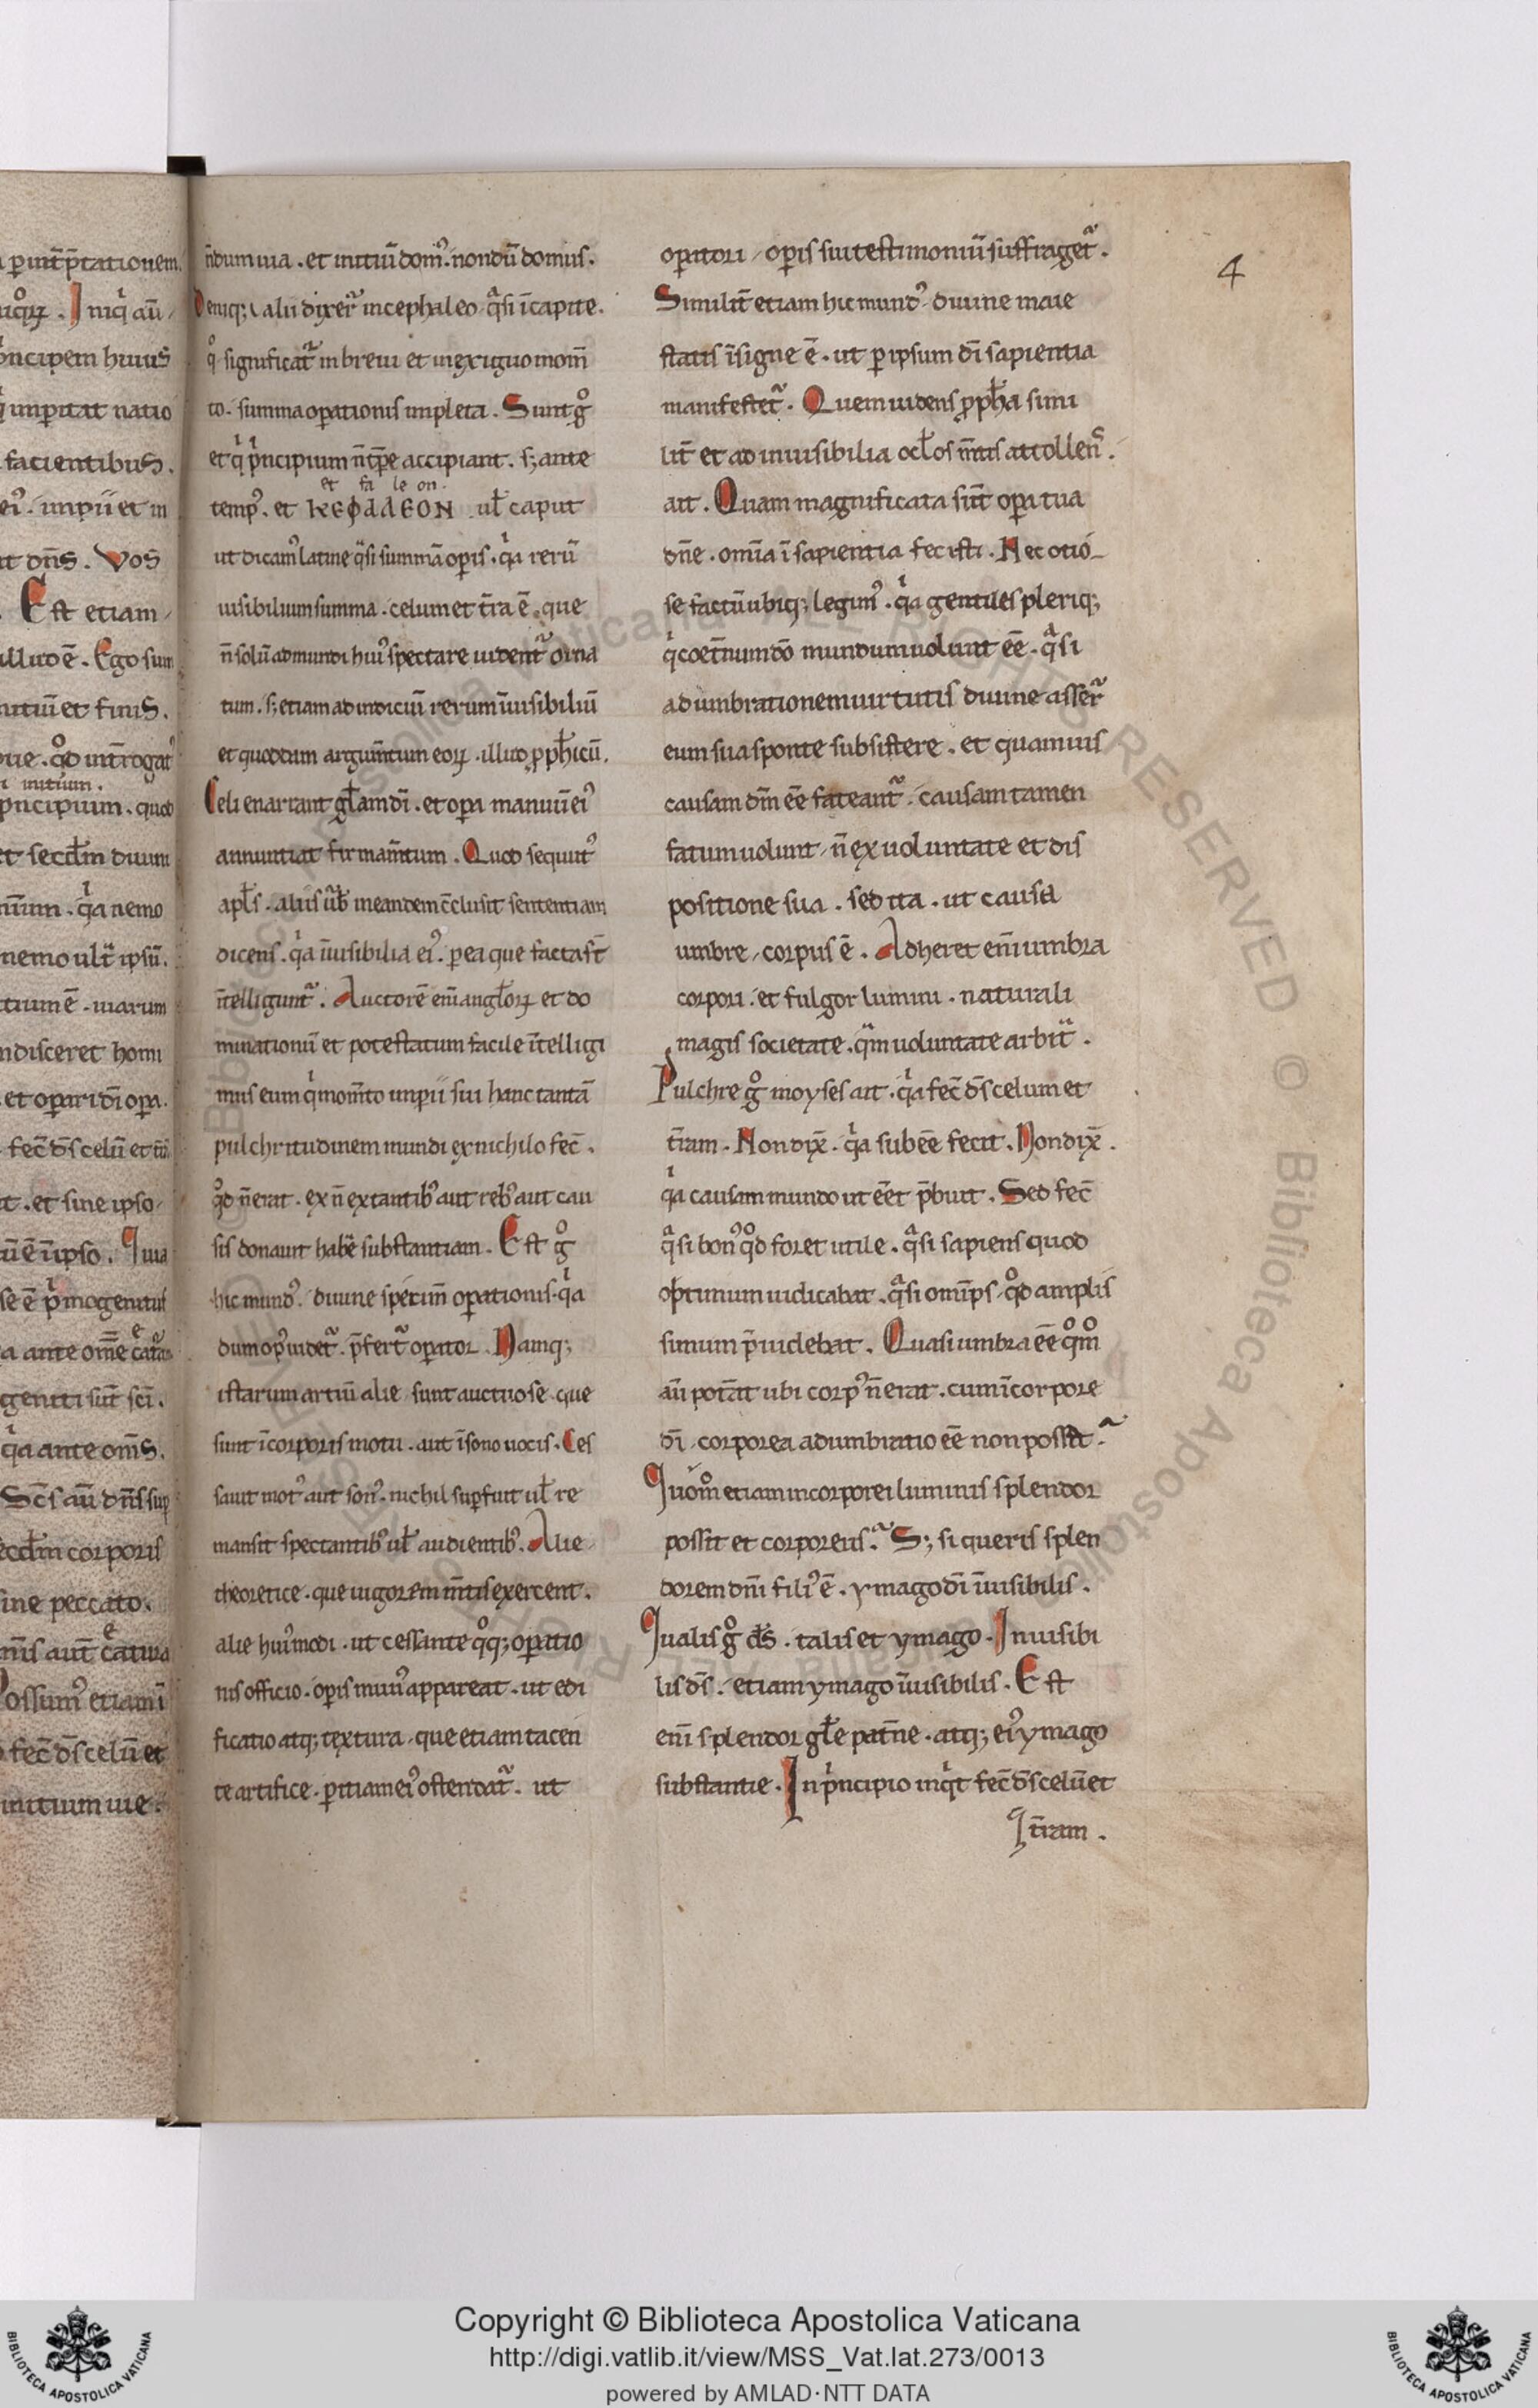 ꝑint̄p̄tationem.
Inqͥ aū
pͥncipem huius
imꝑitat natio
facientibus.
ei᷒. impii et in
dn̄s. Vos
Est etiam
illud ē. Ego sum
initiū et finis.
que. qͦd int̄rogat᷒
initium.
pͥncipium. quod
et secd̄m diuini
qͥa nemo
nemo ult̃ ipsū.
ē. uiarum
disceret homi
et oꝑari dī oꝑa.
fec̄ d̄s celū et
et sine ipso
ē ī ipso. In
ē pͥmogenitus
a ante om̄e
geniti sūt sc̄i.
qͥa ante om̄s.
Sc̄s aū dn̄s
corporis
sine peccato.
Possum᷒ etiam ī
fec̄ d̄s celū et
initium uie.
n̄dum uia. et initiū dom᷒. nondū domus.
Deniqꝫ alii dixer̄ in cephaleo qͣsi ī capite.
qͦ significat̃ in breui et in exiguo mom̄
to. summa oꝑationis impleta. Sunt gͦ
et qͥ pͥncipium n̄ t̄pͤ accipiant. sꝫ ante
et fa le on.
temp᷒. et ΚΕΦΑΛΕΟΝ ul̄ caput
ut dicam᷒ latine qͣsi summā oꝑis. qͥa rerū
uisibilium summa. celum et t̄ra ē. que
n̄ solū ad mundi hui᷒ spectare uident̃ orna
tum. sꝫ etiam ad indiciū rerum īuisibiliū
et quoddam argum̄tum eoꝝ. illud ꝓph̄icū.
Celi enarrant gl̄am dī. et oꝑa manuū ei᷒
annuntiat firmam̄tum. Quod sequut᷒
apl̄s. aliis ūb̄ in eandem c̄clusit sententiam
dicens. qͥa īuisibilia ei᷒. ꝑ ea que facta st̄
īntelligunt̃. Auctorē em̄ angl̄oꝝ et do
minationū et potestatum facile ītelligi
mus eum qͥ mom̄to imꝑii sui hanc tantā
pulchritudinem mundi ex nichilo fec̄.
qͦd n̄ erat. ex n̄ extantib᷒ aut reb᷒ aut cau
sis donauit habē substantiam. Est gͦ
hic mund᷒. diuine specim̄ oꝑationis. qͥa
dum op᷒ uidet̃. p̄fert̃ oꝑator. Namqꝫ
istarum artiū alie sunt actuose que
sunt ī corporis motu. aut ī sono uocis. Ces
sauit mot᷒ aut son᷒. nichil suꝑfuit ul̄ re
mansit spectantib᷒ ul̄ audientib᷒. Alie
theoretice. que uigorem m̄tis exercent.
alie hui᷒modi. ut cessante qͦqꝫ oꝑatio
nis officio. oꝑis mun᷒ appareat. ut edi
ficatio atqꝫ textura. que etiam tacen
te artifice. ꝑitiam ei᷒ ostendat̃. ut
4
oꝑatori oꝑis sui testimoniū suffraget̃.
Similit̄ etiam hic mund᷒ diuine maie
statis īsigne ē. ut ꝑ ipsum dī sapientia
manifestet̃. Quem uidens ꝓph̄a simi
lit̄ et ad inuisibilia ocl̄os m̄tis attollens.
ait. Quam magnificata sūt oꝑa tua
dn̄e. om̄ia ī sapientia fecisti. Nec otio
se factū ubiqꝫ legim᷒. qͥa gentiles pleriqꝫ
qͥ coet̄num dō mundum uolunt ēe. qͣsi
adumbrationem uirtutis diuine asser̄
eum sua sponte subsistere. et quamuis
causam dm̄ ēe fateant̃. causam tamen
fatum uolunt n̄ ex uoluntate et dis
positione sua. sed ita. ut causa
umbre corpus ē. Adheret em̄ umbra
corpori. et fulgor lumini. naturali
magis societate. qͣm uoluntate arbit̃.
Pulchre gͦ moyses ait. qͥa fec̄ d̄s celum et
t̄ram. Non dix̄. qͥa subēe fecit. Non dix̄.
qͥa causam mundo ut ēet p̄buit. Sed fec̄
qͣsi bon᷒ qͦd foret utile. qͣsi sapiens quod
optimum iudicabat. qͣsi omīps qͦd amplis
simum p̄uidebat. Quasi umbra ēe qͦmͦ
aū pot̄at ubi corp᷒ n̄ erat. cum īcorpore
dī corporea adumbratio ēe non possit.
Quomͦ etiam incorporei luminis splendor
possit et corporeus. Sꝫ si queris splen
dorem dm̄ fili᷒ ē. ymago dī īuisibilis.
Qualis gͦ ds̄. talis et ymago. Inuisibi
lis d̄s. etiam ymago īuisibilis. Est
em̄ splendor gl̄e pat̄ne. atqꝫ ei᷒ ymago
substantie. In pͥncipio inqͥt fec̄ d̄s celū et
t̄ram.
Copyright © Biblioteca Apostolica Vaticana
http://digi.vatlib.it/view/MSS_Vat.lat.273/0013
powered by AMLAD·NTT DATA
BIBLIOTECA APOSTOLICA VATICANA
BIBLIOTECA APOSTOLICA VATICANA